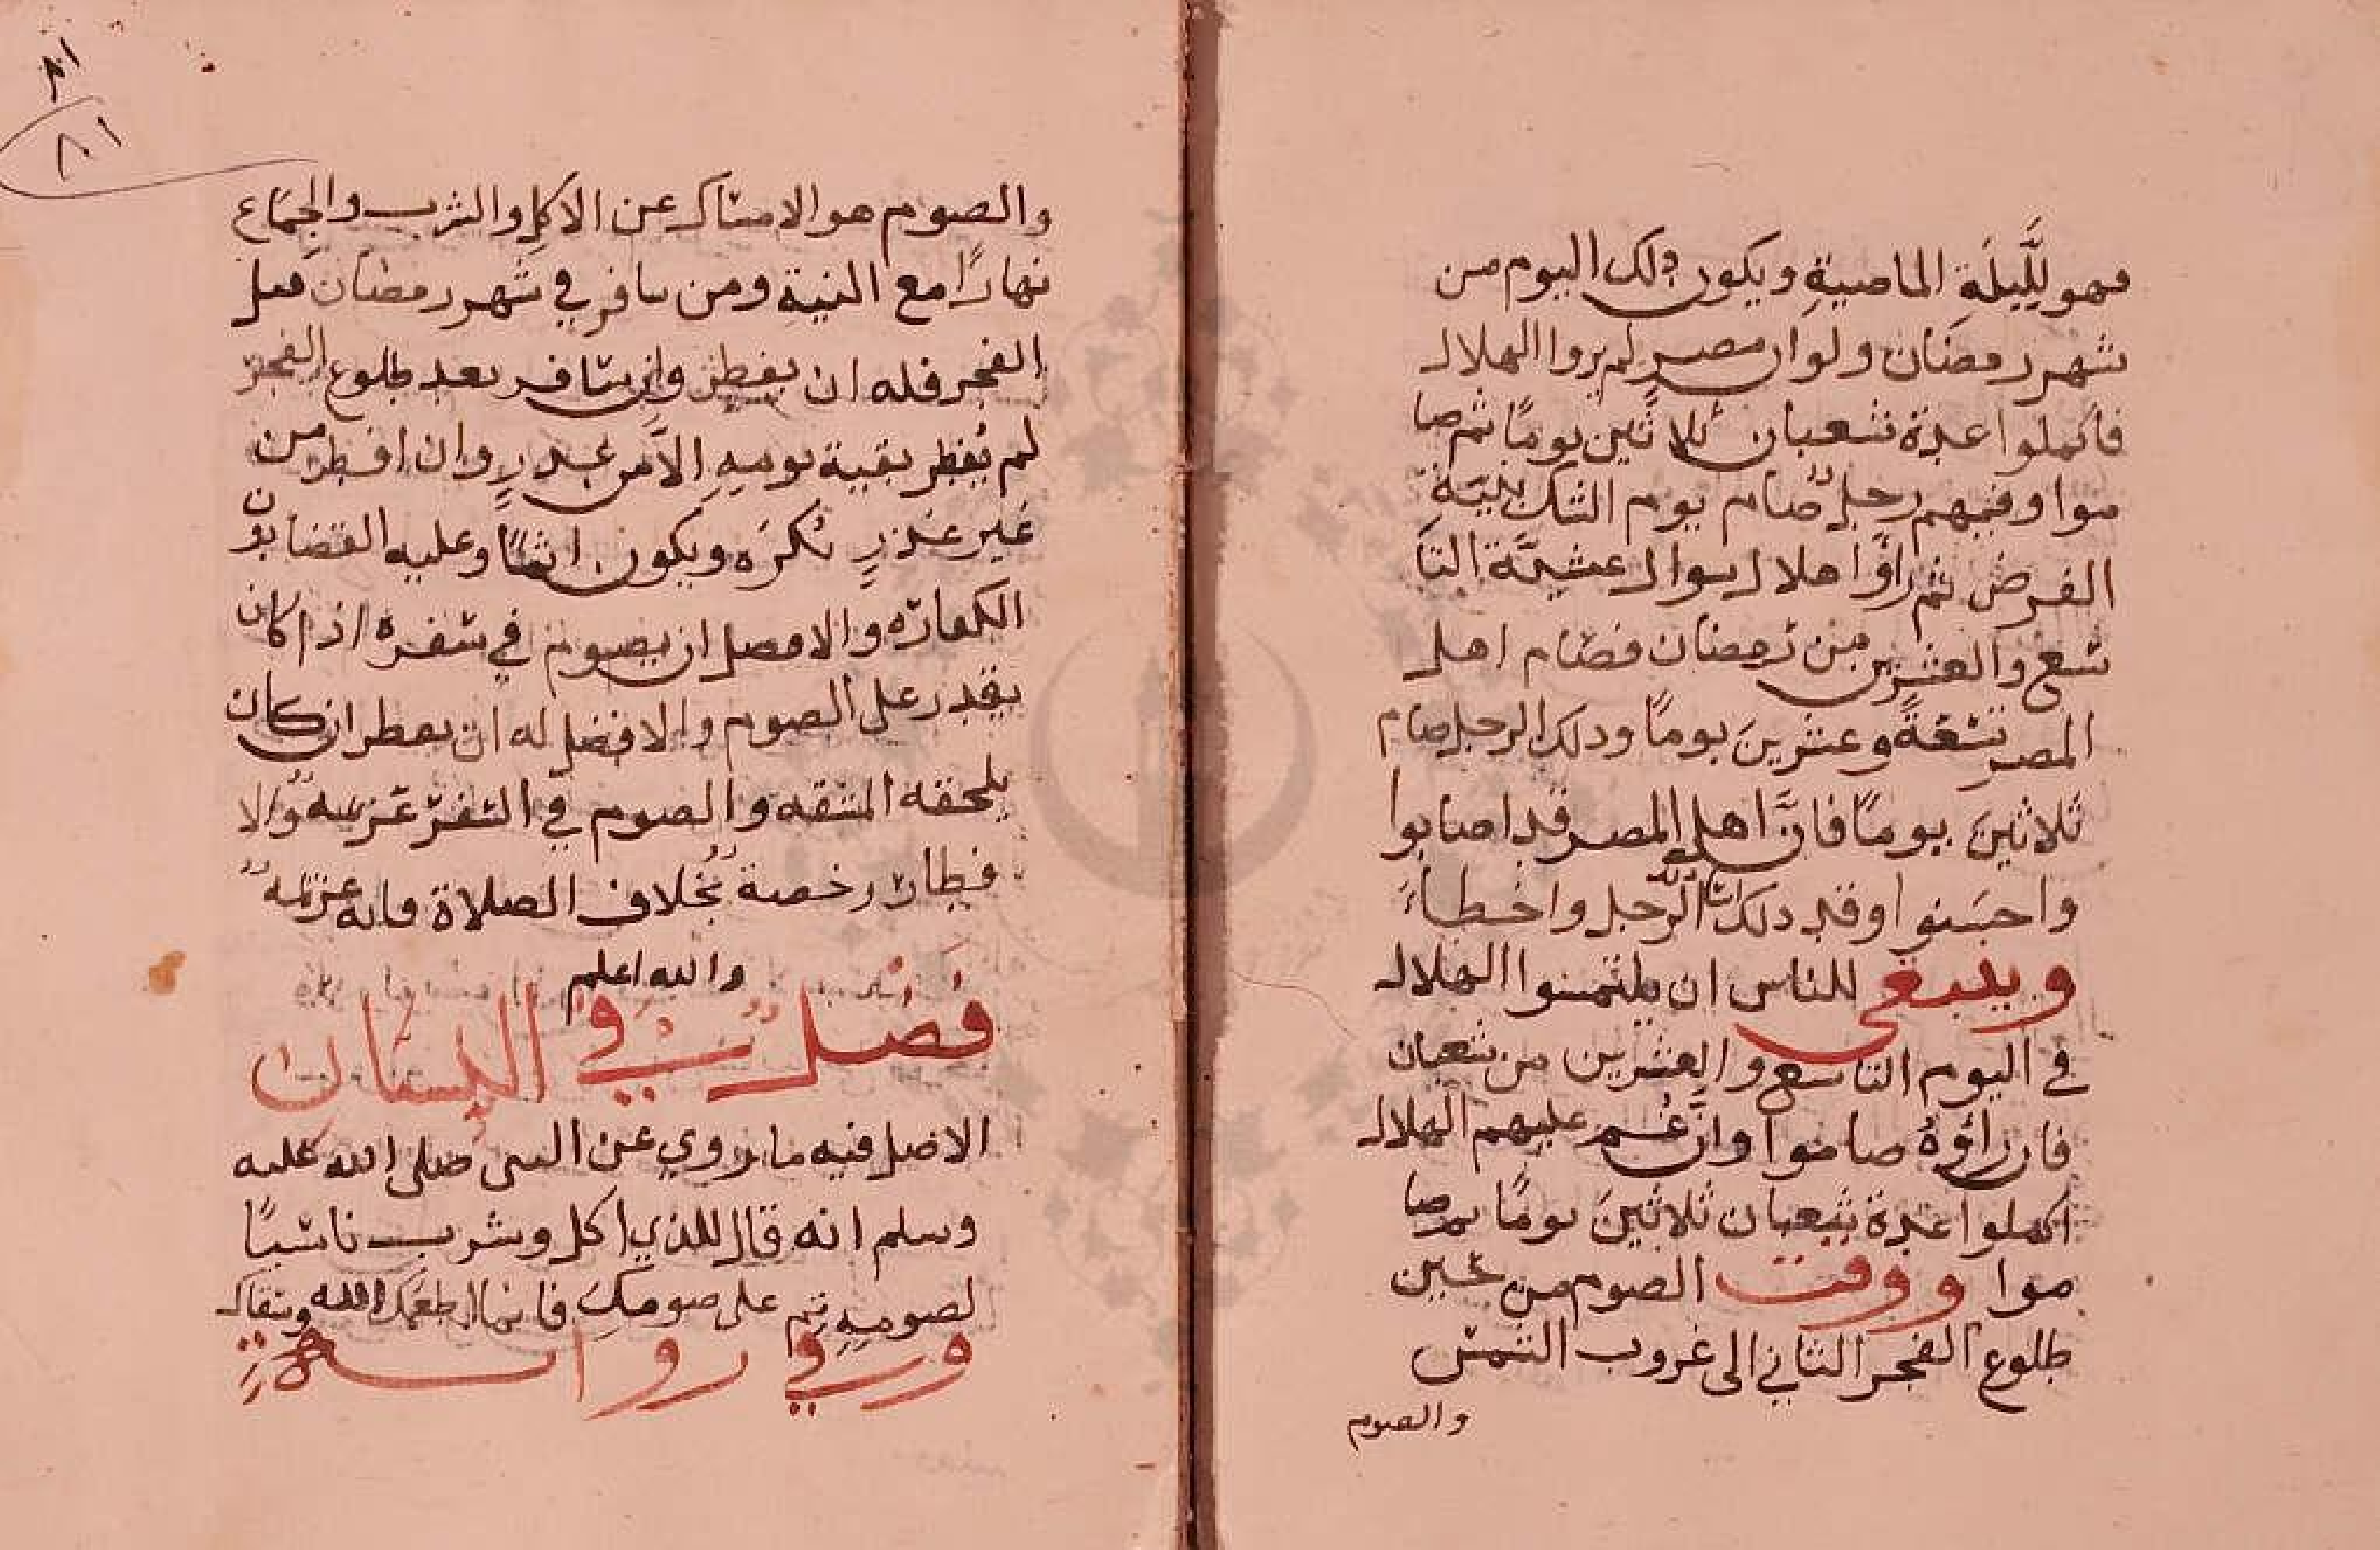 فهو لليلة الماضية ويكون ذلك اليوم من
شهر رمضان ولو ان مصر لم يروا الهلال
فاكملوا عدة شعبان ثلاثين يوما ثم صا
موا وفيهم رجل صام يوم الشك بنية
الفرض ثم راوا هلال شوال عشية التا
سع والعشرين من رمضان فصام اهل
المصر تسعة وعشرين يوما وذلك الرجل صام
ثلاثين يوما فان اهل المصر قد اصابوا
واحسنوا وقد ذلك الرجل واخطاء
وينبغي للناس ان يلتمسوا الهلال
في اليوم التاسع والعشرين من شعبان
فان راؤه صاموا وان غم عليهم الهلال
اكملوا عدة شعبان ثلاثين يوما ثم صا
موا ووقت الصوم من حين
طلوع الفجر الثاني الى غروب الشمس
والصوم
٨١
٨١
والصوم هو الامساك عن الاكل والشرب والجماع
نهارا مع النية ومن سافر في شهر رمضان قبل
الفجر فله ان يفطر وان سافر بعد طلوع الفجر
لم يفطر بقية يومه الا من عذر وان افطر من
غير عذر يكره ويكون اثما وعليه القضا دون
الكفارة والافضل ان يصوم في سفره اذا كان
يقدر على الصوم والافضل له ان يفطر ان كان
يلحقه المشقه والصوم في السفر عزيمة والا
فطار رخصة بخلاف الصلاة فانه عزيمة
والله اعلم
فصل في النسيان
الاصل فيه ما روي عن النبي صلى الله عليه
وسلم انه قال للذي اكل وشرب ناسيا
لصومه تم على صومك فانما اطعمك الله وسقاك
وفي رواية